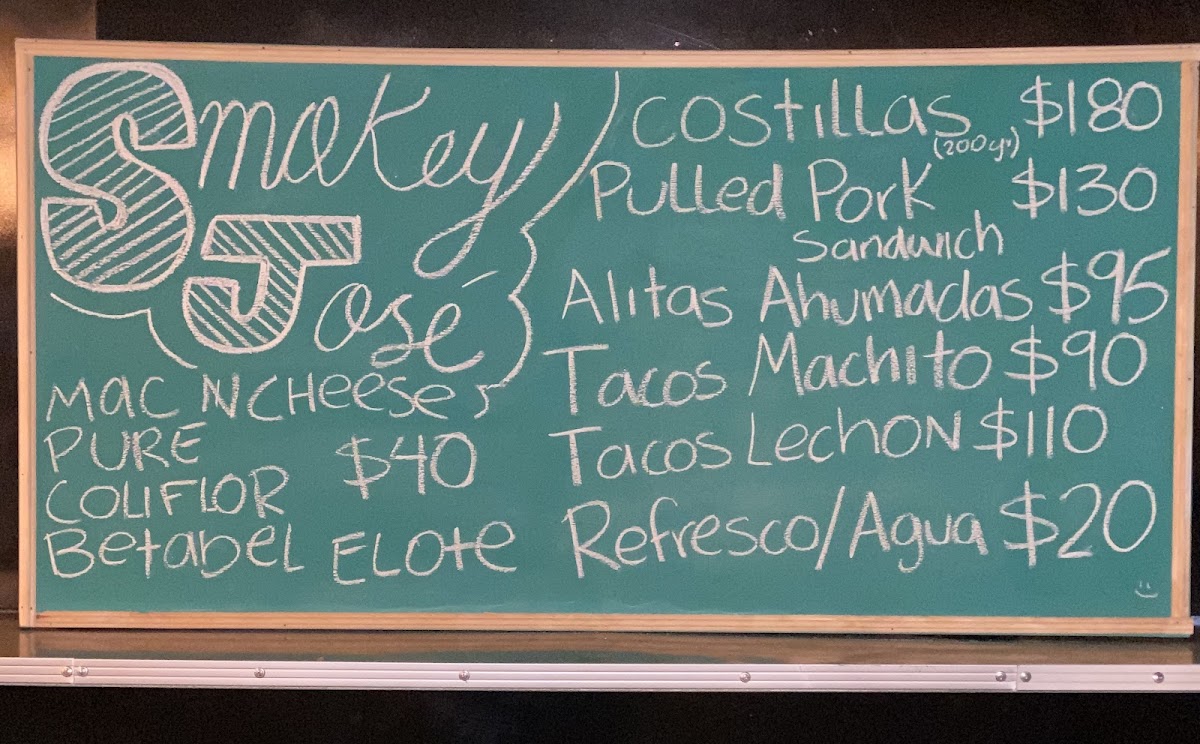 Smokey
José
Mac N Cheese
PURE
$40
COLIFLOR
Betabel ELOte
Costillas (200gr) $180
Pulled Pork $130
Sandwich
Alitas Ahumadas $95
Tacos Machito $90
Tacos Lechon $110
Refresco/Agua $20